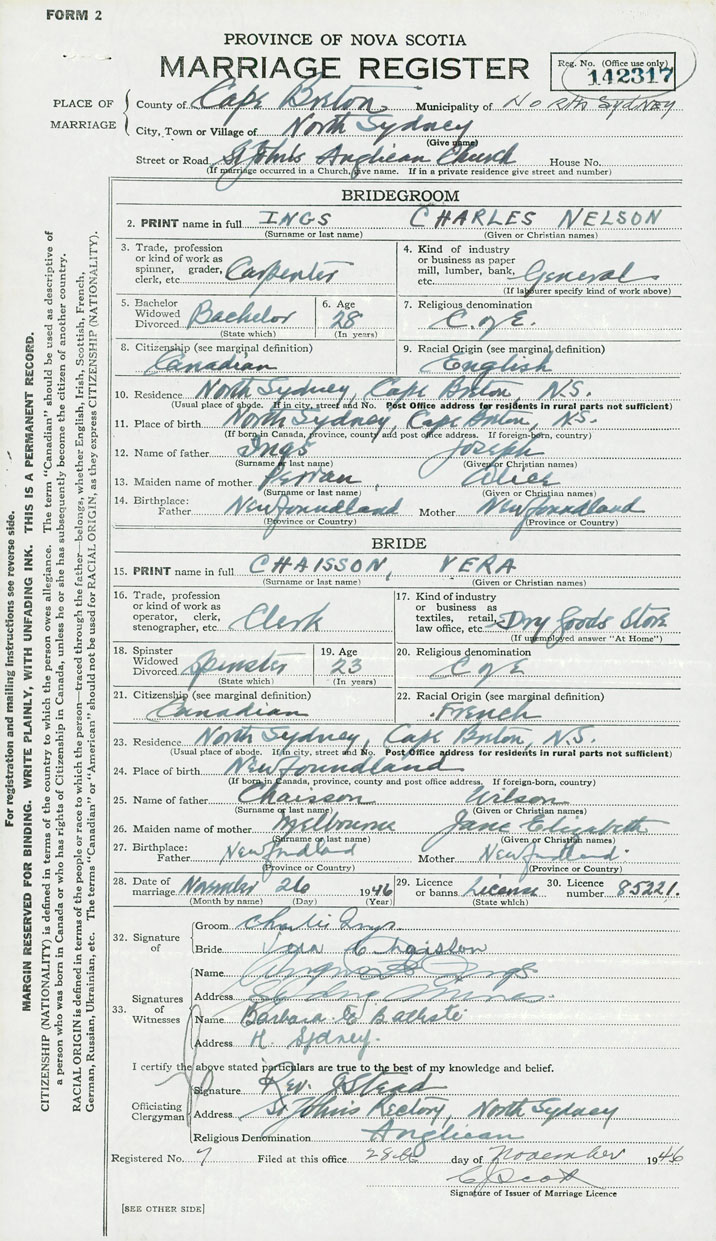 FORM 2
PROVINCE OF NOVA SCOTIA
MARRIAGE REGISTER
Reg. No. (Office use only)
142317
PLACE OF MARRIAGE
County of Cape Breton Municipality of North Sydney
City, Town or Village of North Sydney
(Give name)
Street or Road St John's Anglican Church House No.
(If marriage occurred in a Church, give name. If in a private residence give street and number)
BRIDEGROOM
2. PRINT name in full INGS CHARLES NELSON
(Surname or last name) (Given or Christian names)
3. Trade, profession or kind of work as spinner, grader, clerk, etc. Carpenter
4. Kind of industry or business as paper mill, lumber, bank, etc. General
(If labourer specify kind of work above)
5. Bachelor Widowed Divorced Bachelor
(State which)
6. Age 28
(In years)
7. Religious denomination C. of E.
8. Citizenship (see marginal definition) Canadian
9. Racial Origin (see marginal definition) English
10. Residence North Sydney, Cape Breton, N.S.
(Usual place of abode. If in city, street and No. Post Office address for residents in rural parts not sufficient)
11. Place of birth North Sydney, Cape Breton, N.S.
(If born in Canada, province, county and post office address. If foreign-born, country)
12. Name of father Ings Joseph
(Surname or last name) (Given or Christian names)
13. Maiden name of mother Alice
(Surname or last name) (Given or Christian names)
14. Birthplace: Father Newfoundland Mother Newfoundland
(Province or Country) (Province or Country)
BRIDE
15. PRINT name in full CHAISSON, VERA
(Surname or last name) (Given or Christian names)
16. Trade, profession or kind of work as operator, clerk, stenographer, etc. Clerk
17. Kind of industry or business as textiles, retail, law office, etc. Dry Goods Store
(If unemployed answer "At Home")
18. Spinster Widowed Divorced Spinster
(State which)
19. Age 23
(In years)
20. Religious denomination C of E
21. Citizenship (see marginal definition) Canadian
22. Racial Origin (see marginal definition) French
23. Residence North Sydney, Cape Breton, N.S.
(Usual place of abode. If in city, street and No. Post Office address for residents in rural parts not sufficient)
24. Place of birth Newfoundland
(If born in Canada, province, county and post office address. If foreign-born, country)
25. Name of father Chaisson Wilson
(Surname or last name) (Given or Christian names)
26. Maiden name of mother Melbourne Jane Elizabeth
(Surname or last name) (Given or Christian names)
27. Birthplace: Father Newfndland Mother Newfndland
(Province or Country) (Province or Country)
28. Date of marriage November 26 1946
(Month by name) (Day) (Year)
29. Licence or banns License
(State which)
30. Licence number 85221.
32. Signature of
Groom Charlie Ings
Bride Vera Chaisson
33. Signatures of Witnesses
Name Ings
Address Sydney Mines
Name Barbara E Battiste
Address N. Sydney.
I certify the above stated particulars are true to the best of my knowledge and belief.
Officiating Clergyman
Signature Rev. J Stead
Address St John's Rectory, North Sydney
Religious Denomination Anglican
Registered No. 7 Filed at this office 28th day of November 1946
C Scott
Signature of Issuer of Marriage Licence
[SEE OTHER SIDE]
For registration and mailing instructions see reverse side.
MARGIN RESERVED FOR BINDING. WRITE PLAINLY, WITH UNFADING INK. THIS IS A PERMANENT RECORD.
CITIZENSHIP (NATIONALITY) is defined in terms of the country to which the person owes allegiance. The term "Canadian" should be used as descriptive of
a person who was born in Canada or who has rights of Citizenship in Canada, unless he or she has subsequently become the citizen of another country.
RACIAL ORIGIN is defined in terms of the people or race to which the person—traced through the father—belongs, whether English, Irish, Scottish, French,
German, Russian, Ukrainian, etc. The terms "Canadian" or "American" should not be used for RACIAL ORIGIN, as they express CITIZENSHIP (NATIONALITY).